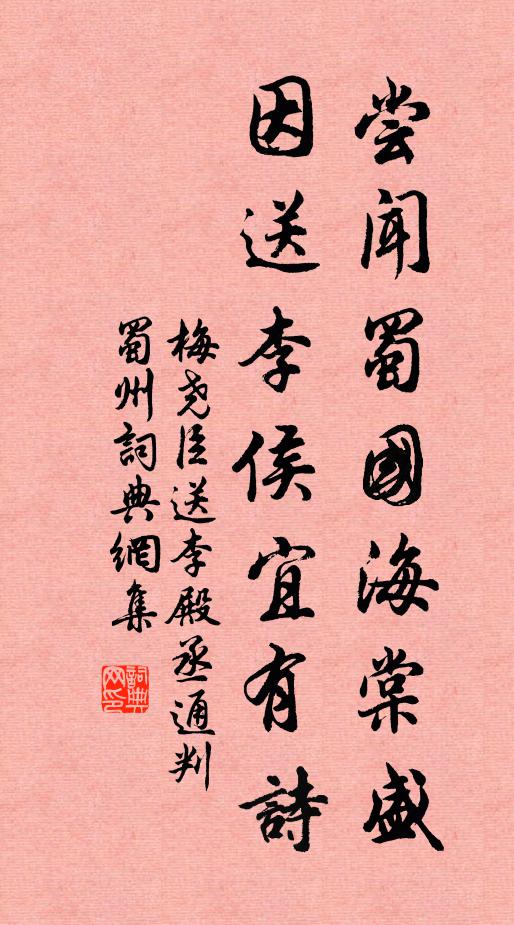 尝闻蜀國海棠盛
因送李侯宜有詩
梅尧臣送李殿丞通判
蜀州詞典網集
詞典
网印